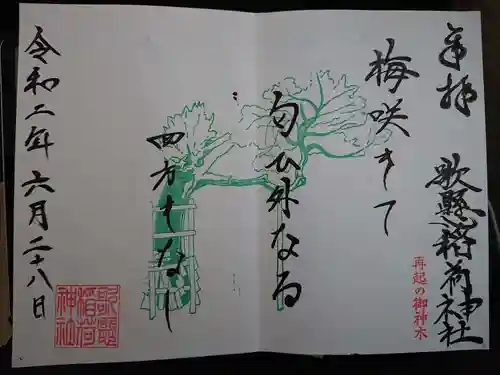 奉拝
歌懸稲荷神社
再起の御神木
梅咲きて
匂ひ外なる
四方もなし
令和二年六月二十八日
歌懸
稲荷
神社